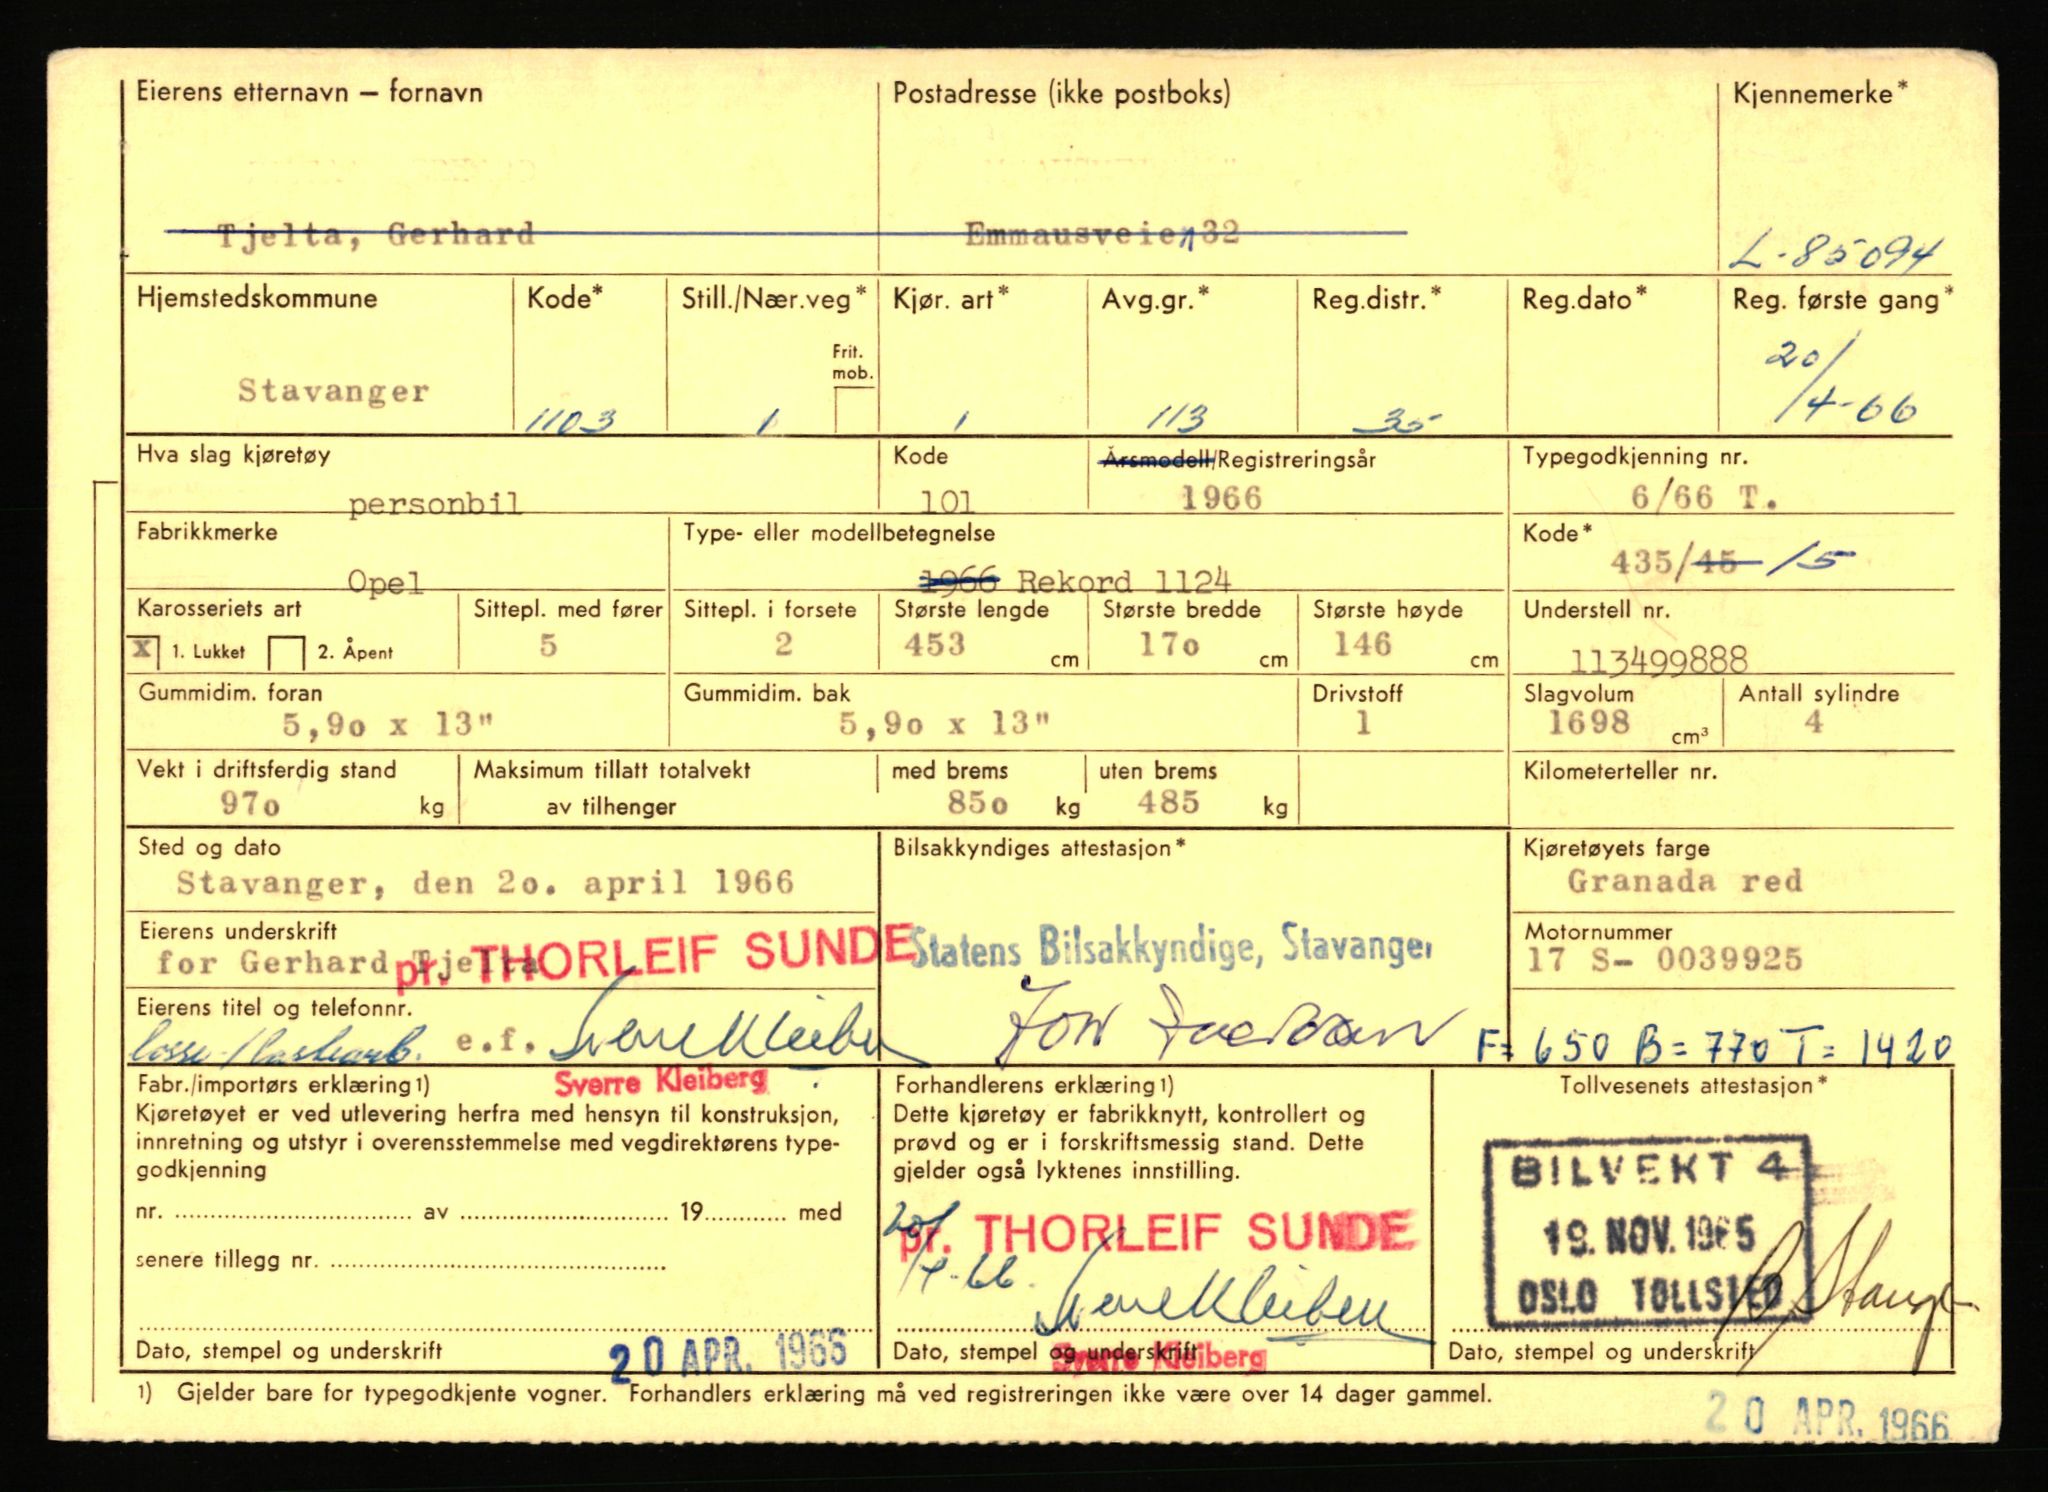 Eierens etternavn – fornavn
Postadresse (ikke postboks)
Kjennemerke*
Tjelta, Gerhard
Emmausveien 32
L-85094
Hjemstedskommune
Kode*
Still./Nær.veg*
Kjør. art*
Avg.gr.*
Reg.distr.*
Reg.dato*
Reg. første gang*
Frit.
mob.
20/
/4-66
Stavanger
1103
1
1
113
35
Hva slag kjøretøy
Kode
Årsmodell/Registreringsår
Typegodkjenning nr.
personbil
101
1966
6/66 T.
Fabrikkmerke
Type- eller modellbetegnelse
Kode*
Opel
1966 Rekord 1124
435/45 /5
Karosseriets art
Sittepl. med fører
Sittepl. i forsete
Største lengde
Største bredde
Største høyde
Understell nr.
x 1. Lukket
2. Åpent
5
2
453 cm
17o cm
146 cm
113499888
Gummidim. foran
Gummidim. bak
Drivstoff
Slagvolum
Antall sylindre
5,9o x 13"
5,9o x 13"
1
1698 cm³
4
Vekt i driftsferdig stand
Maksimum tillatt totalvekt
med brems
uten brems
Kilometerteller nr.
97o kg
av tilhenger
85o kg
485 kg
Sted og dato
Bilsakkyndiges attestasjon*
Kjøretøyets farge
Stavanger, den 2o. april 1966
Granada red
Eierens underskrift
Motornummer
for Gerhard Tjelta
pr. THORLEIF SUNDE
Statens Bilsakkyndige, Stavanger
17 S- 0039925
Eierens titel og telefonnr.
e.f. Sverre Kleiberg
F= 650 B= 770 T= 1420
Sverre Kleiberg
Fabr./importørs erklæring1)
Kjøretøyet er ved utlevering herfra med hensyn til konstruksjon,
innretning og utstyr i overensstemmelse med vegdirektørens type-
godkjenning
nr. .......... av .......... 19.......... med
senere tillegg nr. ..........
Dato, stempel og underskrift
20 APR. 1966
Forhandlerens erklæring1)
Dette kjøretøy er fabrikknytt, kontrollert og
prøvd og er i forskriftsmessig stand. Dette
gjelder også lyktenes innstilling.
20/
/4-66.
pr. THORLEIF SUNDE
Sverre Kleiberg
Dato, stempel og underskrift
Sverre Kleiberg
Tollvesenets attestasjon*
BILVEKT 4
19. NOV. 1965
OSLO TOLLSTED
Dato, stempel og underskrift
1) Gjelder bare for typegodkjente vogner. Forhandlers erklæring må ved registreringen ikke være over 14 dager gammel.
20 APR. 1966